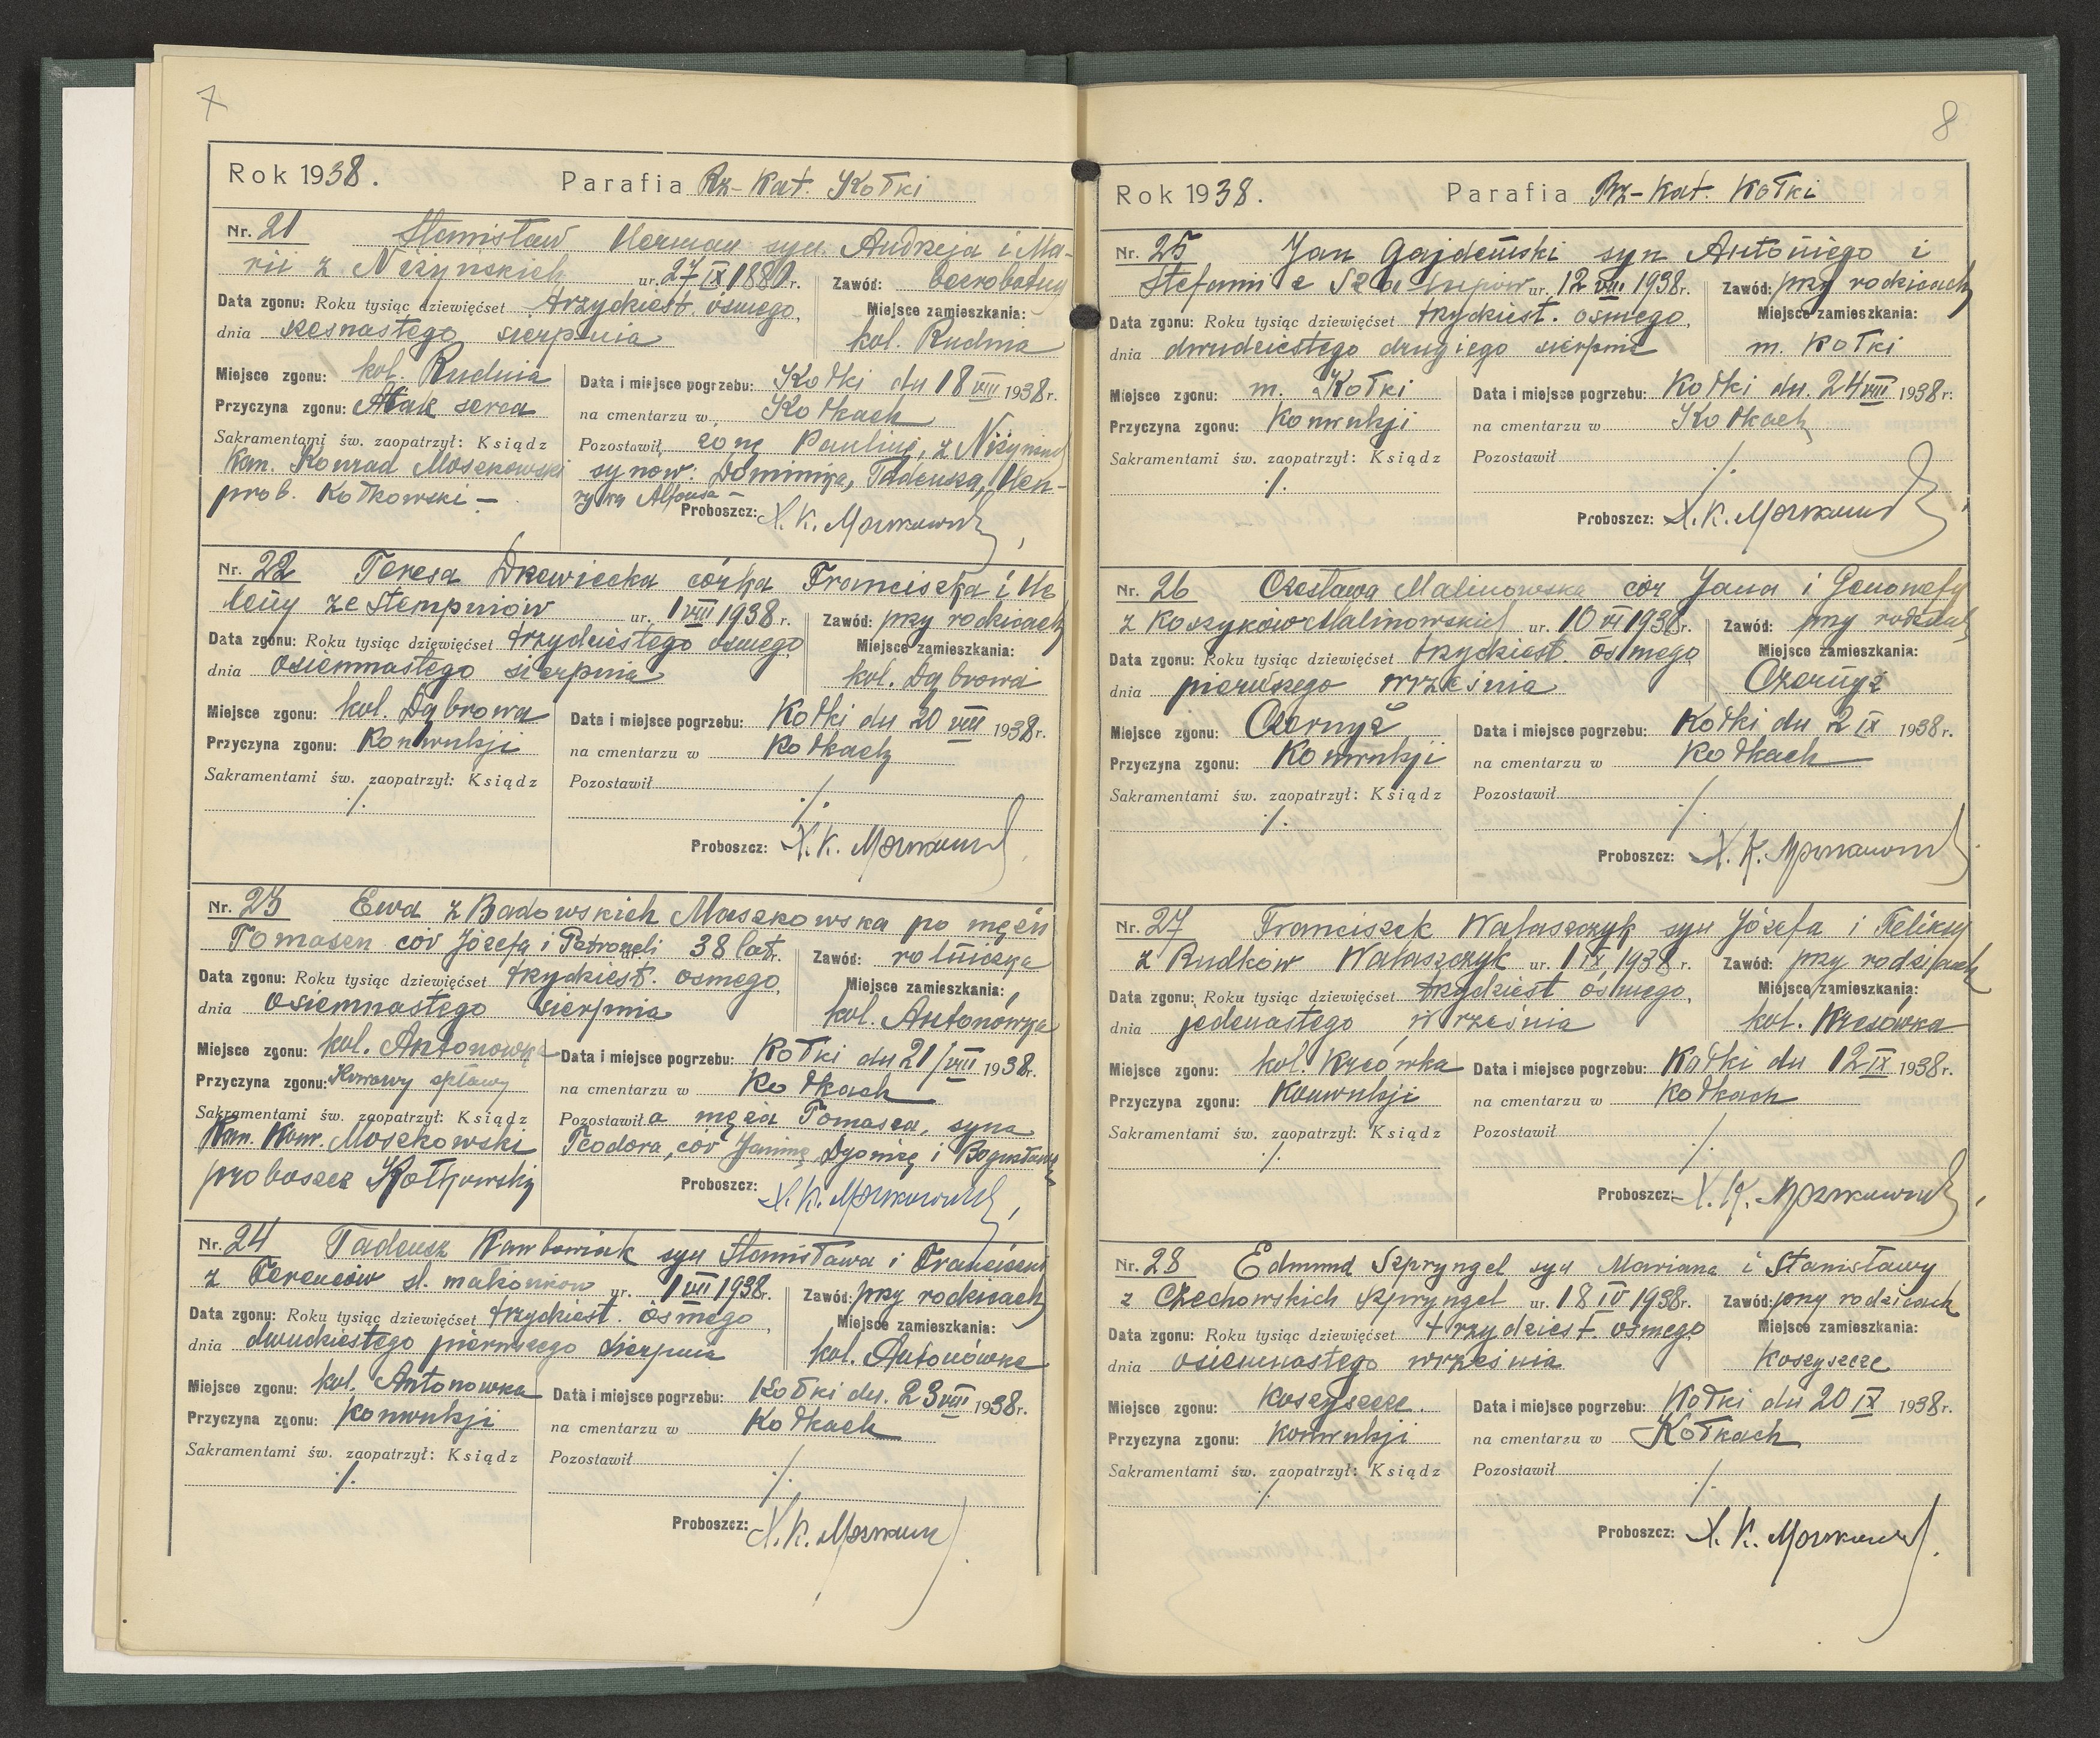 7
Rok 1938. Parafia Rz-Kat. Kołki
Nr. 21 Stanisław Herman syn Andrzeja i Ma-
rii z Niżyńskich ur. 27 IX 1880 r. Zawód: bezrobotny
Data zgonu: Roku tysiąc dziewięćset trzydziest. ósmego, Miejsce zamieszkania:
dnia szesnastego sierpnia kol. Rudnia
Miejsce zgonu: kol. Rudnia Data i miejsce pogrzebu: Kołki dn 18 VIII 1938 r.
Przyczyna zgonu: Atak serca na cmentarzu w Kołkach
Sakramentami św. zaopatrzył: Ksiądz Pozostawił żonę Paulinę, z
Kan. Konrad Moszkowski synów: Dominika, Tadeusza, Hen-
prob. Kołkowski – ryka Alfonsa –
Proboszcz: X. K. Moszkowski
Nr. 22 Teresa Drzewiecka córka Franciszka i He
leny ze Stempniów ur. 1 VIII 1938 r. Zawód: przy rodzicach
Data zgonu: Roku tysiąc dziewięćset trzydziestego ósmego Miejsce zamieszkania:
dnia osiemnastego sierpnia kol. Dąbrowa
Miejsce zgonu: kol. Dąbrowa Data i miejsce pogrzebu: Kołki dn 20 VIII 1938 r.
Przyczyna zgonu: Konwulsji na cmentarzu w Kołkach
Sakramentami św. zaopatrzył: Ksiądz Pozostawił
./. ./.
Proboszcz: X. K. Moszkowski
Nr. 23 Ewa z Badowskich Maszkowska po mężu
Tomaszu cór Józefa i Petroneli ur. 38 lat r. Zawód: rolniczka
Data zgonu: Roku tysiąc dziewięćset trzydziest. osmego, Miejsce zamieszkania:
dnia osiemnastego sierpnia kol. Antonówka
Miejsce zgonu: kol. Antonowka Data i miejsce pogrzebu: Kołki dn 21/VIII 1938 r.
Przyczyna zgonu: na cmentarzu w Kołkach
Sakramentami św. zaopatrzył: Ksiądz Pozostawiła męża Tomasza, syna
Kan. Konr. Moszkowski Teodora, cór Janinę, Dyonizę i Bogusławę
proboszcz Kołkowski
Proboszcz: X. K. Moszkowski
Nr. 24 Tadeusz syn Stanisława i
z Ferenców śl. małżonków ur. 1 VIII 1938 r. Zawód: przy rodzicach
Data zgonu: Roku tysiąc dziewięćset trzydziest. ósmego, Miejsce zamieszkania:
dnia dwudziestego pierwszego sierpnia kol. Antonówka
Miejsce zgonu: kol. Antonowka Data i miejsce pogrzebu: Kołki dn. 23 VIII 1938 r.
Przyczyna zgonu: Konwulsji na cmentarzu w Kołkach
Sakramentami św. zaopatrzył: Ksiądz Pozostawił
./. ./.
Proboszcz: X. K. Moszkowski
8
Rok 1938. Parafia Rz-Kat. Kołki
Nr. 25 Jan Gajdeński syn Antoniego i
Stefanii ur. 12 VIII 1938 r. Zawód: przy rodzicach
Data zgonu: Roku tysiąc dziewięćset trzydziest. ósmego, Miejsce zamieszkania:
dnia dwudziestego drugiego sierpnia m. Kołki
Miejsce zgonu: m. Kołki Data i miejsce pogrzebu: Kołki dn. 24 VIII 1938 r.
Przyczyna zgonu: Konwulsji na cmentarzu w Kołkach
Sakramentami św. zaopatrzył: Ksiądz Pozostawił
./. ./.
Proboszcz: X. K. Moszkowski
Nr. 26 Czesława Malinowska cór Jana i Genowefy
z Koszyków Malinowskich ur. 10 VI 1938 r. Zawód: przy rodzicach
Data zgonu: Roku tysiąc dziewięćset trzydziest. ósmego Miejsce zamieszkania:
dnia pierwszego września Czernyż
Miejsce zgonu: Czernyż Data i miejsce pogrzebu: Kołki dn 2 IX 1938 r.
Przyczyna zgonu: Konwulsji na cmentarzu w Kołkach
Sakramentami św. zaopatrzył: Ksiądz Pozostawił
./. ./.
Proboszcz: X. K. Moszkowski
Nr. 27 Franciszek Wałaszczyk syn Józefa i Feliksy
z Rudków Wałaszczyk ur. 1 IX 1938 r. Zawód: przy rodzicach
Data zgonu: Roku tysiąc dziewięćset trzydziest ósmego, Miejsce zamieszkania:
dnia jedenastego września kol.
Miejsce zgonu: kol. Data i miejsce pogrzebu: Kołki dn 12 IX 1938 r.
Przyczyna zgonu: Konwulsji na cmentarzu w Kołkach
Sakramentami św. zaopatrzył: Ksiądz Pozostawił
./. ./.
Proboszcz: X. K. Moszkowski
Nr. 28 Edmund Szpryngel syn Mariana i Stanisławy
z Czechowskich Szpryngel ur. 18 IV 1938 r. Zawód: przy rodzicach
Data zgonu: Roku tysiąc dziewięćset trzydziest. ósmego Miejsce zamieszkania:
dnia osiemnastego września Koszyszcze
Miejsce zgonu: Koszyszcze. Data i miejsce pogrzebu: Kołki dn 20 IX 1938 r.
Przyczyna zgonu: Konwulsji na cmentarzu w Kołkach
Sakramentami św. zaopatrzył: Ksiądz Pozostawił
./. ./.
Proboszcz: X. K. Moszkowski